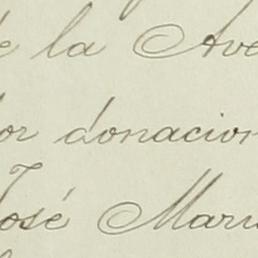 de la Ave
por donacion
José Mari